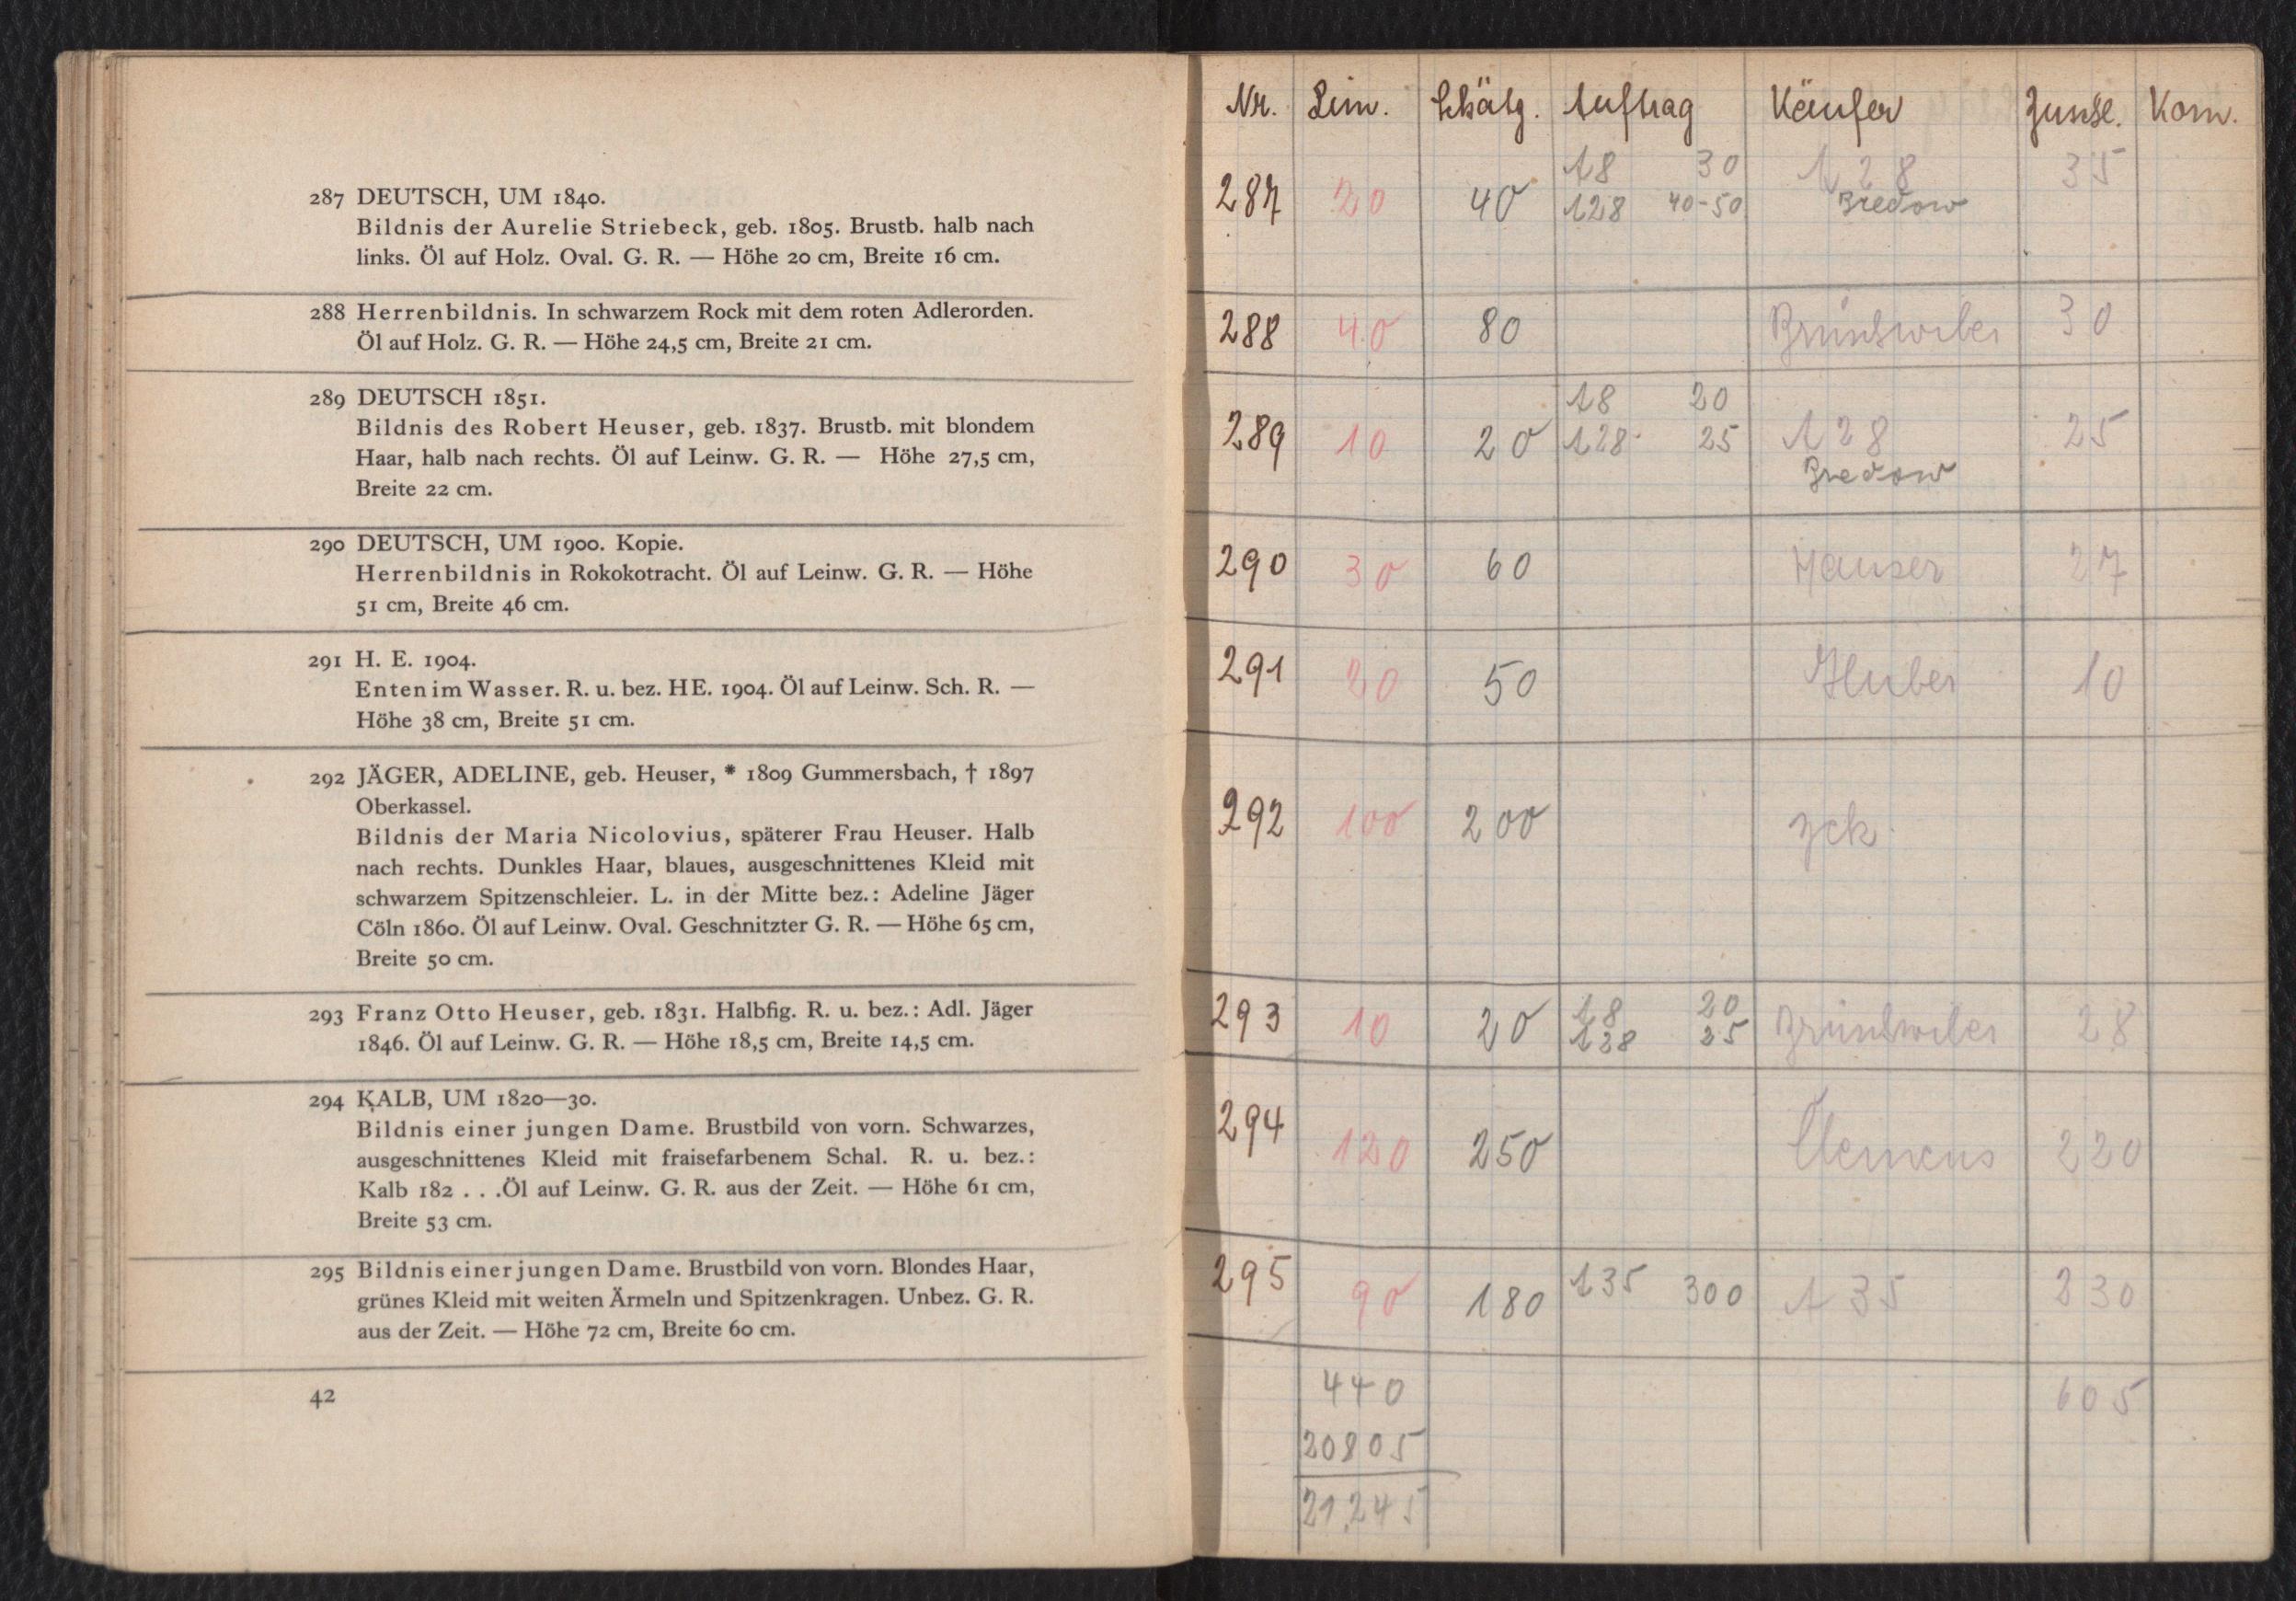 287 DEUTSCH, UM 1840.
Bildnis der Aurelie Striebeck, geb. 1805. Brustb. halb nach
links. Öl auf Holz. Oval. G. R. — Höhe 20 cm, Breite 16 cm.
288 Herrenbildnis. In schwarzem Rock mit dem roten Adlerorden.
Öl auf Holz. G. R. — Höhe 24,5 cm, Breite 21 cm.
289 DEUTSCH 1851.
Bildnis des Robert Heuser, geb. 1837. Brustb. mit blondem
Haar, halb nach rechts. Öl auf Leinw. G. R. — Höhe 27,5 cm,
Breite 22 cm.
290 DEUTSCH, UM 1900. Kopie.
Herrenbildnis in Rokokotracht. Öl auf Leinw. G. R. — Höhe
51 cm, Breite 46 cm.
291 H. E. 1904.
Enten im Wasser. R. u. bez. HE. 1904. Öl auf Leinw. Sch. R. —
Höhe 38 cm, Breite 51 cm.
292 JÄGER, ADELINE, geb. Heuser, * 1809 Gummersbach, † 1897
Oberkassel.
Bildnis der Maria Nicolovius, späterer Frau Heuser. Halb
nach rechts. Dunkles Haar, blaues, ausgeschnittenes Kleid mit
schwarzem Spitzenschleier. L. in der Mitte bez.: Adeline Jäger
Cöln 1860. Öl auf Leinw. Oval. Geschnitzter G. R. — Höhe 65 cm,
Breite 50 cm.
293 Franz Otto Heuser, geb. 1831. Halbfig. R. u. bez.: Adl. Jäger
1846. Öl auf Leinw. G. R. — Höhe 18,5 cm, Breite 14,5 cm.
294 KALB, UM 1820—30.
Bildnis einer jungen Dame. Brustbild von vorn. Schwarzes,
ausgeschnittenes Kleid mit fraisefarbenem Schal. R. u. bez.:
Kalb 182 . . .Öl auf Leinw. G. R. aus der Zeit. — Höhe 61 cm,
Breite 53 cm.
295 Bildnis einer jungen Dame. Brustbild von vorn. Blondes Haar,
grünes Kleid mit weiten Ärmeln und Spitzenkragen. Unbez. G. R.
aus der Zeit. — Höhe 72 cm, Breite 60 cm.
42
Nr. Lim. Schätzg. Auftrag Käufer Zuschl. Kom.
A8 30 A 28 35
287 20 40 A28 40-50 Bredow
288 40 80 30
A8 20
289 10 20 A28 25 A 28 25
Bredow
290 30 60 Hauser 27
291 20 50 Huber 10
292 100 200 zck
A8 20
293 10 20 A28 25 28
294 120 250 Clemens 220
295 90 180 A35 300 A 35 230
440 605
20805
21.245